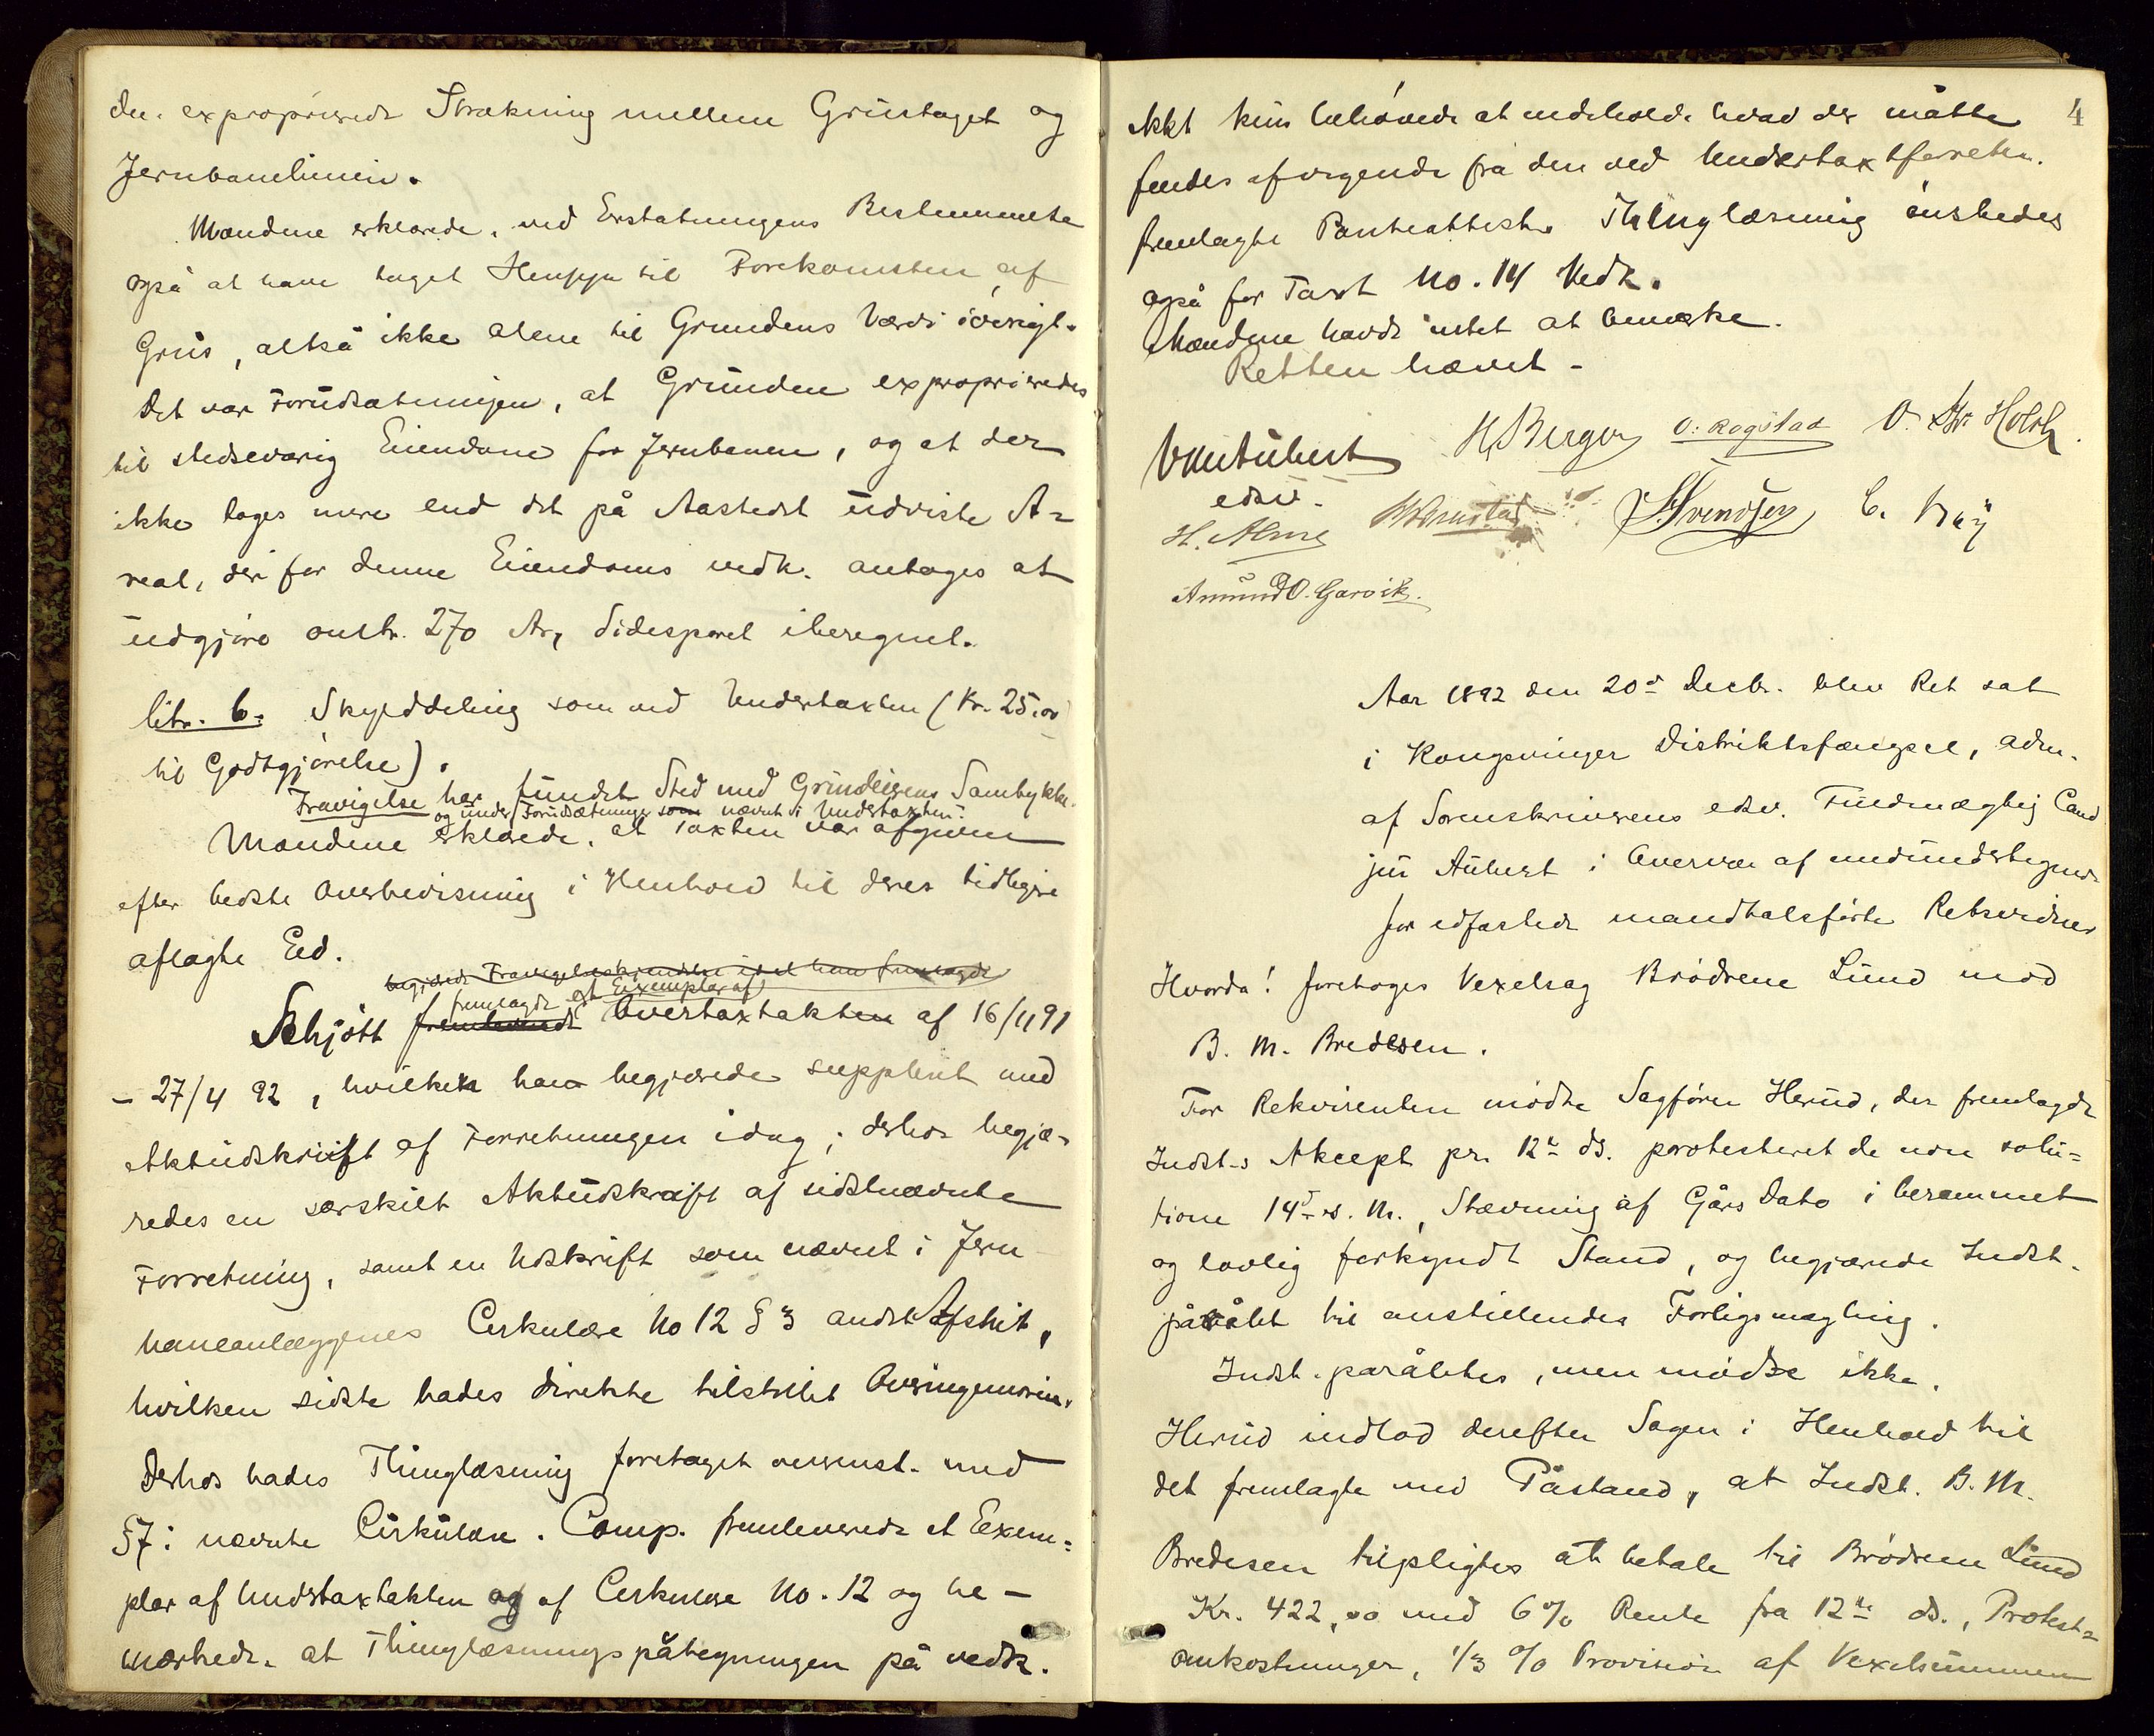 den exproprierede Strækning mellem Grustaget og
Jernbanelinien.
Mændene erklærede, ved Erstatningens Bestemmelse
også at have taget Hensyn til Forekomsten af
Grus, altså ikke alene til Grundens Værdi iøvrigt.
Det var Forudsætningen, at Grunden exproprieredes
til stedsevarig Eiendom for Jernbanen, og at der
ikke toges mere end det på Aastedet udviste A-
real, der for denne Eiendoms vedk. antages at
udgjøre omtr. 270 Ar, Sidesporet iberegnet.
litr. C. Skylddeling som ved Undertaxten (Kr. 25,00
til Godtgjørelse).
Fravigelse har fundet Sted med Grundeierens Samtykke
og under Forudsætninger som nævnt i Undertaxten.
Mændene erklærede, at Taxten var afgiven
efter bedste Overbevisning i Henhold til deres tidligere
aflagte Eed.
begjærede Fravigelseskjendelse idet han fremlagde
fremlagde et Exemplar af
Schjøtt fremleverede Overtaxtakten af 16/11 91
- 27/4 92, hvilken han begjærede suppleret med
Aktudskrift af Forretningen idag; derhos begjæ-
redes en særskilt Aktudskrift af sidstnævnte
Forretning, samt en Udskrift som nævnt i Jern-
baneanlæggenes Cirkulære No 12 § 3 andet Afsnit,
hvilken sidste bades direkte tilstillet Overingeniøren.
Derhos bades Thinglæsning foretaget overenst. med
§ 7 i nævnte Cirkulære. Comp. fremleverede et Exem-
plar af Undertaxtakten og af Cirkulære No. 12 og be-
mærkede, at Thinglæsningspåtegningen på vedk.
4
Akt kun behøvede at indeholde hvad der måtte
findes afvigende fra den ved Undertaxtforretn.
fremlagte Panteattest. Thinglæsning ønskedes
også for Taxt No. 14 Vedk.
Mændene havde intet at bemærke.
Retten hævet -
Aubert
edsv.
H. Berger O. Rogstad O. Kr. Holth
H. Alme J. Svendsen C. Bry
Amund O. Garvik.
Aar 1892 den 20de Decbr. blev Ret sat
i Kongsvinger Distriktsfængsel, adm.
af Sorenskriverens edsv. Fuldmægtig Cand
jur Aubert i Overvær af medundertegnede
for edfæstede mandtalsførte Retsvidner
Hvorda! foretoges Vexelsag Brødrene Lund mod
B. M. Bredesen.
For Rekvirenten mødte Sagfører Herud, der fremlagde
Indst.s Akcept pr. 12te ds. protesteret de non solu-
tione 14de s. M., Stævning af Gårs Dato i berammet
og lovlig forkyndt Stand, og begjærede Indst.
påråbt til anstillendes Forligsmægling.
Indst. påråbtes, men mødte ikke.
Herud indlod derefter Sagen i Henhold til
det fremlagte med Påstand, at Indst. B. M.
Bredesen tilpligtes at betale til Brødrene Lund
Kr. 422,00 med 6% Rente fra 12te ds., Protest-
omkostninger, 1/3 % Provision af Vexelsummen